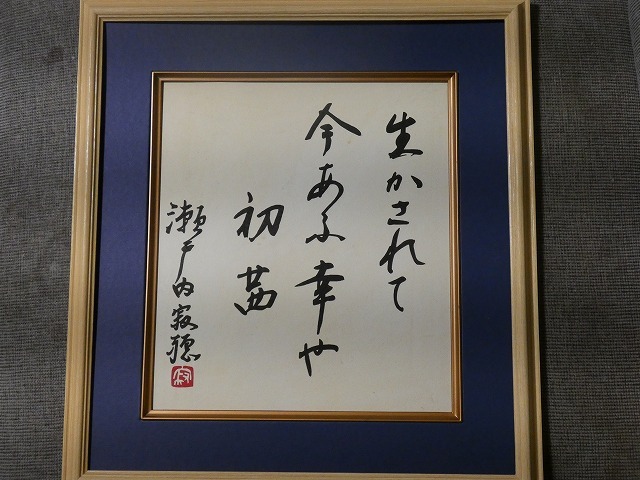 生かされて
今あふ幸や
初茜
瀬戸内寂聴
寂